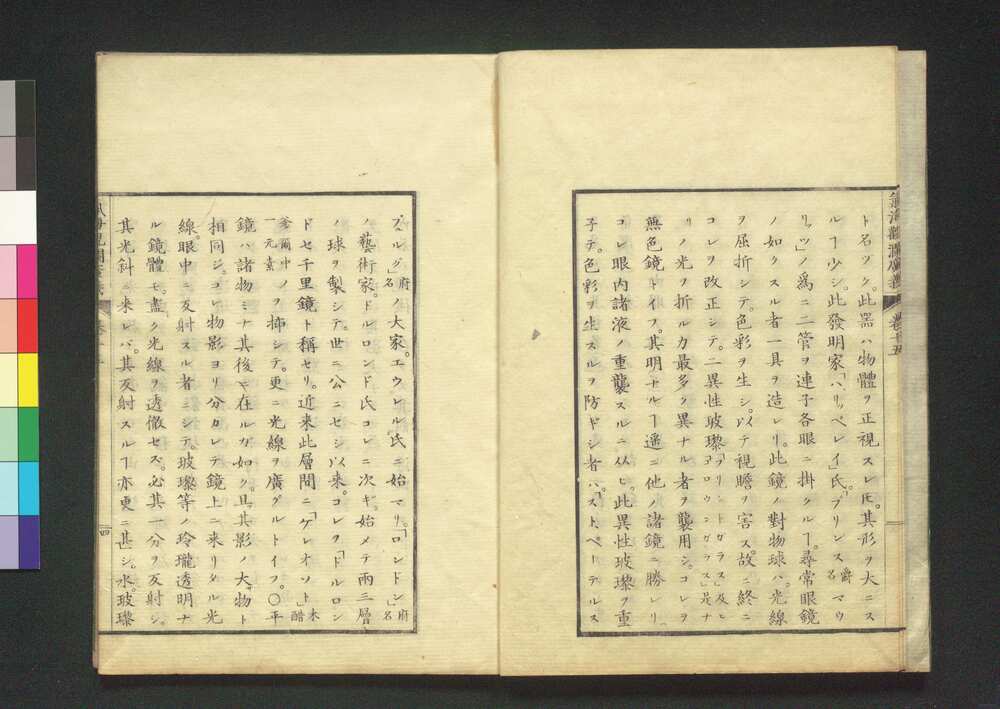 氣海觀瀾廣義 卷十五
ト名ヅク。此器ハ物體ヲ正視スレ𪜈。其形ヲ大ニス
ルヿ少シ。此發明家「ハ、リッペレイ」氏。「プリンス」爵名マウ
リッツ」ノ爲ニ二管ヲ連子各眼ニ掛クルヿ。尋常眼鏡
ノ如クスル者一具ヲ造レリ。此鏡ノ對物球ハ。光線
ヲ屈折シテ。色彩ヲ生シ。以テ視瞻ヲ害ス。故ニ終ニ
コレヲ改正シテ。二異性玻瓈「フリントガラス」及ヒ「コロウンガラス」是ナ
リノ光ヲ折ルカ最多ク異ナル者ヲ襲用シ。コレヲ
無色鏡トイフ。其明ナルヿ遥ニ他ノ諸鏡ニ勝レリ。
コレ眼内諸液ノ重襲スルニ似ヒ。此異性玻瓈ヲ重
子テ。色彩ヲ生スルヲ防ギシ者ハ。「ストペーテルス
ブルグ」府名ノ大家。エウレル氏ニ始マリ。「ロンドン」府名
ノ藝術家。ドルロンド氏コレニ次ギ。始メテ兩三層
ノ球ヲ製シテ。世ニ公ニセシ以來。コレヲ「ドルロン
ド」セ千里鏡ト稱セリ。近来此層間ニ「ケレオソト」木酷
爹爾中一元素ノヲ挿シテ。更ニ光線ヲ廣グルトイフ。〇平
鏡ハ諸物ミナ其後ニ在ルガ如ク。且其影ノ大。物ト
相同ジ。コレ物影ヨリ分カレテ鏡上ニ来リタル光
線。眼中ニ反射スル者ニシテ。玻瓈等ノ玲瓏透明ナ
ル鏡體モ。盡ク光線ヲ透徹セズ。必其一分ヲ反射シ。
其光斜ニ来レバ。其反射スルヿ亦更ニ甚シ。水。玻瓈
四